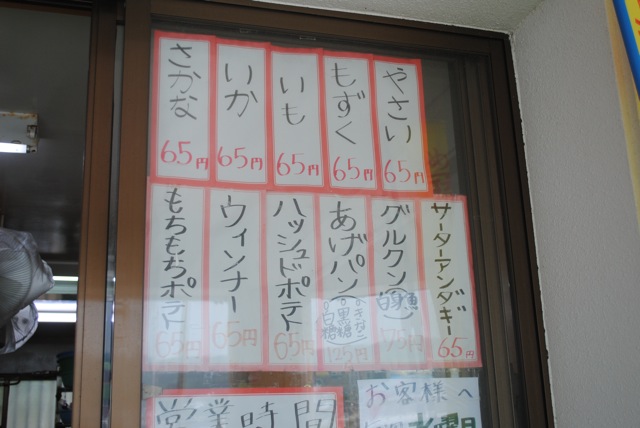 やさい
65円
もずく
65円
いも
65円
いか
65円
さかな
65円
サーターアンダギー
65円
グルクン
(白身魚)
175円
あげパン
(きなこ
黒糖
白糖)
125円
ハッシュドポテト
65円
ウィンナー
65円
もちもちポテト
65円
営業時間
お客様へ
水曜日